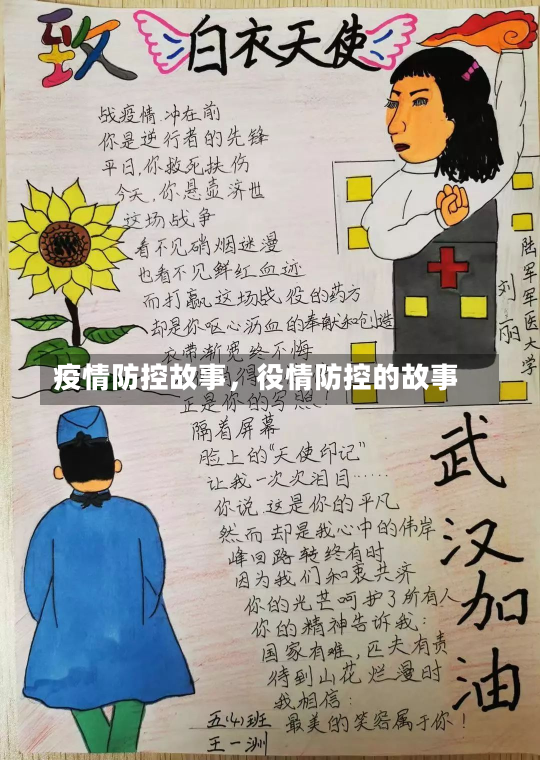 致 白衣天使
战疫情.冲在前
你是逆行者的先锋
平日,你救死扶伤
今天,你悬壶济世
这场战争
看不见硝烟迷漫
也看不见鲜红血迹
而打赢这场战役的药方
却是你呕心沥血的奉献和创造
衣带渐宽终不悔
疫情防控故事，役情防控的故事
正是你的写照!
隔着屏幕
脸上的"天使印记"
让我一次次泪目……
你说,这是你的平凡
然而却是我心中的伟岸
峰回路转终有时
因为我们和衷共济
你的光芒呵护了所有人
你的精神告诉我:
国家有难,匹夫有责
待到山花烂漫时
我相信:
最美的笑容属于你!
陆军军医大学
刘丽
武汉加油
五(4)班
王一洲